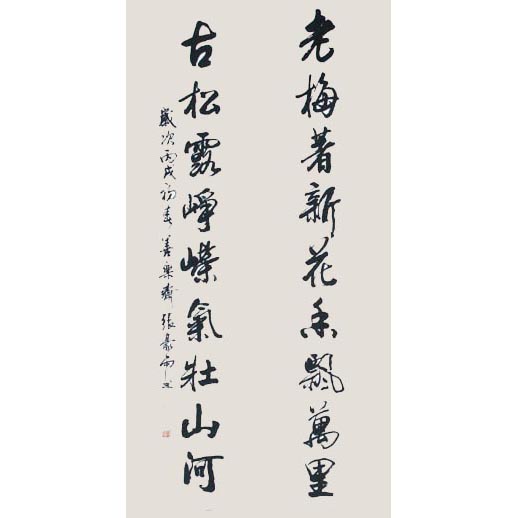 老梅著新花香飘萬里
古松露峥嵘氣壯山河
歲次丙戌初春善樂齋張